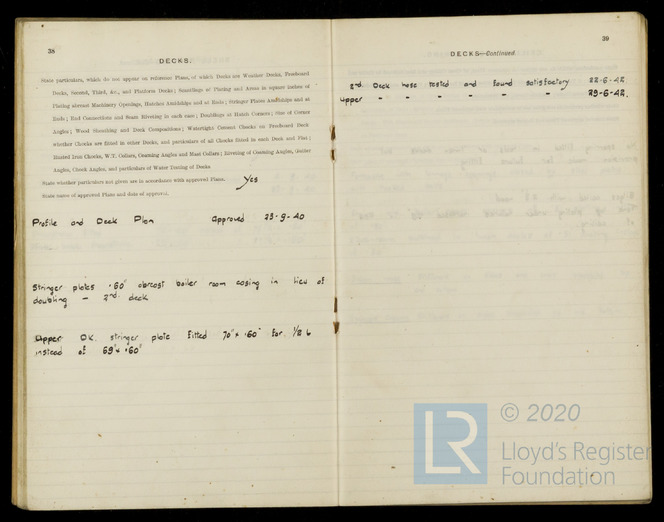 38
DECKS.
State particulars, which do not appear on relevant Plans, of which Decks are Weather Decks, Freeboard
Decks, Second, Third, &c., and Platform Decks; Scantlings of Plating and Areas in square inches of
Plating abreast Machinery Openings, Hatches Amidships and at Ends; Stringer Plates Amidships and at
Ends; End Connections and Seam Riveting in each case; Doublings at Hatch Corners; Size of Corner
Angles; Wood Sheathing and Deck Compositions; Watertight Cement Chocks on Freeboard Deck
whether Chocks are fitted in other Decks, and particulars of all Chocks fitted in each Deck and Flat;
Busted Iron Chocks, W.T. Collars, Coaming Angles and Mast Collars; Riveting of Coaming Angles, Gutter
Angles, Chock Angles, and particulars of Water Testing of Decks
State whether particulars not given are in accordance with approved Plans. Yes
State name of approved Plans and date of approval.
Profile and Deck Plan Approved 23-9-40
Stringer plates ·60" abreast boiler room casing in lieu of
doubling – 2nd deck
Upper DK. stringer plate fitted 70" x ·60" for 1/2 L
instead of 69" x ·60"
39
DECKS—Continued.
2nd Deck hose tested and found satisfactory 22-6-42
Upper – " – " – " – 29-6-42.
LR
© 2020
Lloyd's Register
Foundation